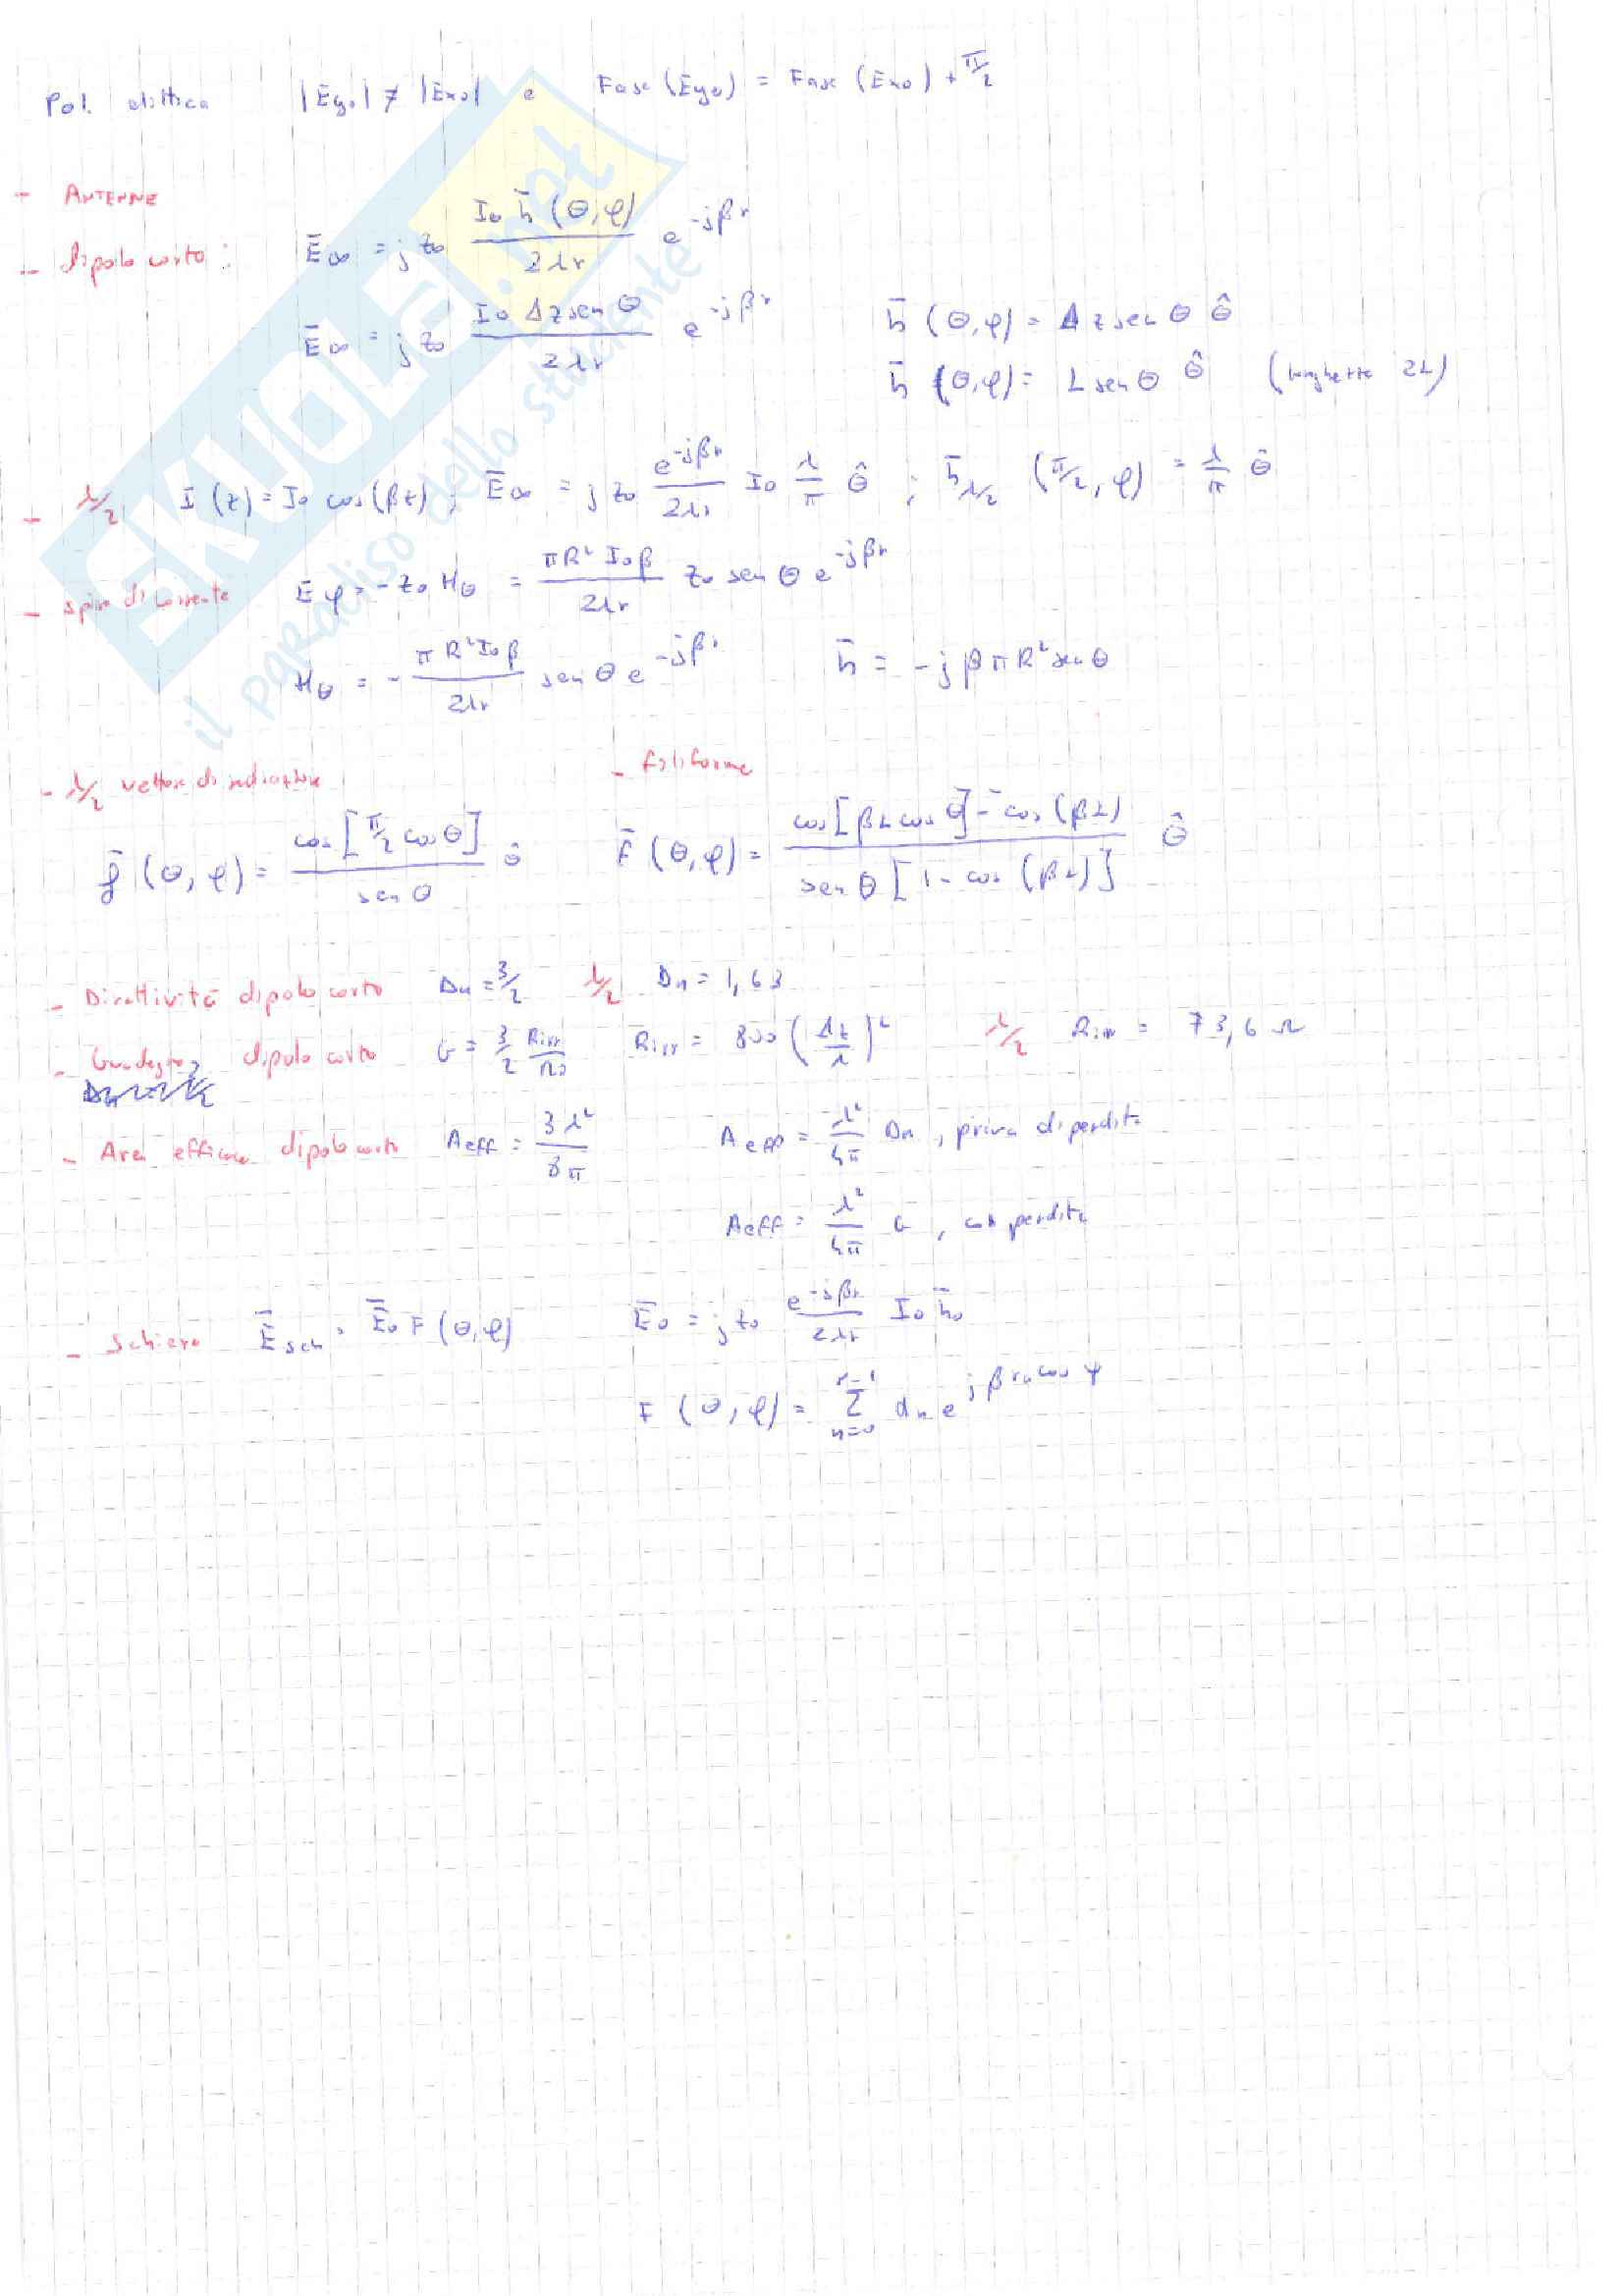 Pol. elittica |Eyo| ≠ |Exo| e Fase (Eyo) = Fase (Exo) + π/2
- ANTENNE
- dipolo corto: Ē∞ = j Zo (Io h̄ (θ,φ) / 2λr) e^(-jβr)
Ē∞ = j Zo (Io Δz sen θ / 2λr) e^(-jβr) h̄ (θ,φ) = Δz sen θ θ̂
h̄ (θ,φ) = L sen θ θ̂ (lunghezza 2L)
- λ/2 I(z) = Io cos(βz) ; Ē∞ = j Zo (e^(-jβr) / 2λr) Io (λ/π) θ̂ ; h̄λ/2 (π/2, φ) = λ/π θ̂
- spira di corrente Eφ = -Zo Hθ = (πR² Io β / 2λr) Zo sen θ e^(-jβr)
Hθ = - (πR² Io β / 2λr) sen θ e^(-jβr) h̄ = -jβπR² sen θ
- λ/2 vettore di radiazione - filiforme
f̄ (θ, φ) = (cos [π/2 cos θ] / sen θ) θ̂ F̄ (θ,φ) = (cos [βL cos θ] - cos (βL) / sen θ [1 - cos (βL)]) θ̂
- Direttività dipolo corto Dn = 3/2 λ/2 Dn = 1,63
- Guadagno dipolo corto G = 3/2 Rirr/ Rirr = 800 (Δz/λ)² λ/2 Rirr = 73,6 Ω
- Area efficace dipolo corto Aeff = 3λ²/8π Aeff = λ²/4π Dn, priva di perdite
Aeff = λ²/4π G, con perdite
- Schiera Ēsch = Ēo F (θ,φ) Ēo = j Zo (e^(-jβr) / 2λr) Io h̄o
F (θ,φ) = Σ n=0 N-1 αn e^(jβ rn cos ψ)
SKUOLA.net
il paradiso dello studente